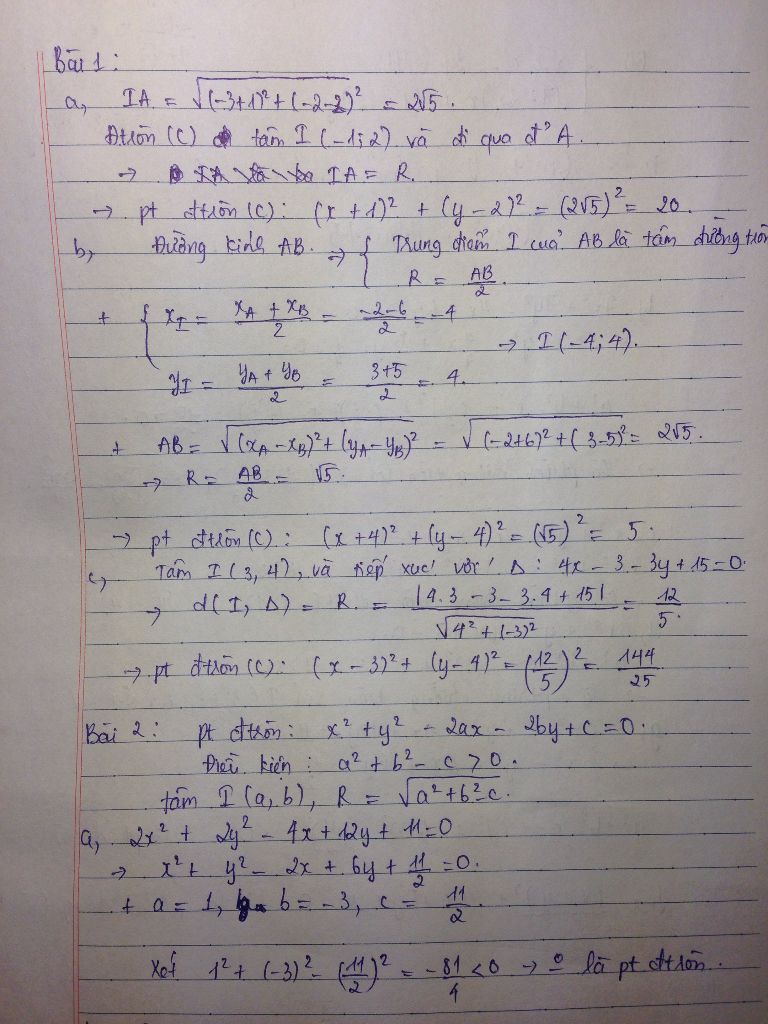 Bài 1:
a, IA = √((-3+1)² + (-2-2)²) = 2√5.
Đtròn (C) tâm I (-1; 2) và đi qua đ² A.
→ IA = R.
→ pt đtròn (C): (x + 1)² + (y - 2)² = (2√5)² = 20.
b, Đường kính AB. → { Trung điểm I của AB là tâm đường tròn
R = AB/2.
+ { x_I = (x_A + x_B)/2 = (-2-6)/2 = -4
→ I (-4; 4).
y_I = (y_A + y_B)/2 = (3+5)/2 = 4.
+ AB = √((x_A - x_B)² + (y_A - y_B)²) = √((-2+6)² + (3-5)²) = 2√5.
→ R = AB/2 = √5.
→ pt đtròn (C): (x + 4)² + (y - 4)² = (√5)² = 5.
c, Tâm I (3, 4), và tiếp xúc với Δ: 4x - 3 - 3y + 15 = 0.
→ d(I, Δ) = R = |4.3 - 3 - 3.4 + 15| / √(4² + (-3)²) = 12/5.
→ pt đtròn (C): (x - 3)² + (y - 4)² = (12/5)² = 144/25
Bài 2: pt đtròn: x² + y² - 2ax - 2by + c = 0.
Điều kiện: a² + b² - c > 0.
tâm I (a, b), R = √(a² + b² - c).
a, 2x² + 2y² - 4x + 12y + 11 = 0
→ x² + y² - 2x + 6y + 11/2 = 0.
+ a = 1, b = -3, c = 11/2.
Xét 1² + (-3)² - (11/2)² = -81/4 < 0 → là pt đtròn.